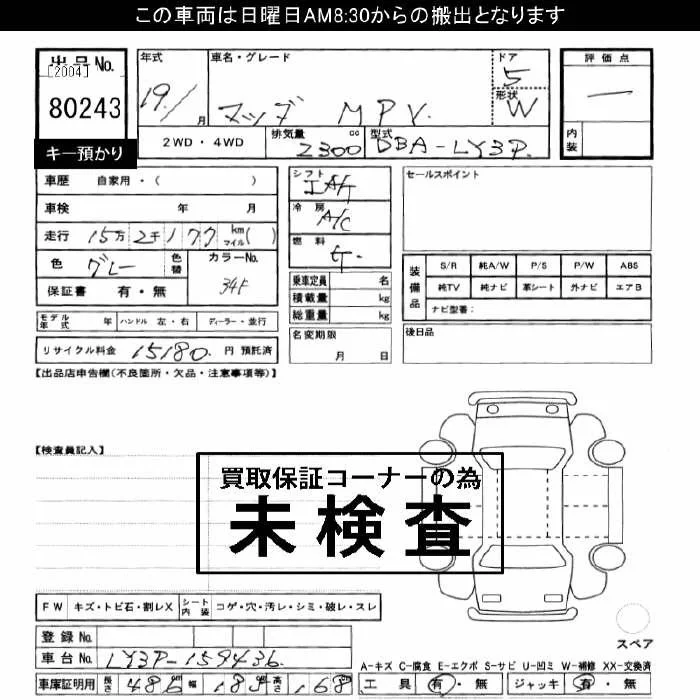 この車両は日曜日AM8:30からの搬出となります
出品No. [2004] 80243
キー預かり
年式 19/ 月 車名・グレード マツダ MPV. ドア 5 形状 W
2WD・4WD 排気量 2300 cc 型式 DBA-LY3P
評価点 ー
内装
車歴 自家用・( )
車検 年 月
走行 15万2千177 km マイル( )
色 グレー 色替 カラーNo. 34F
保証書 有・無
シフト IAT
冷房 A/C
燃料
乗車定員 名
積載量 kg
総重量 kg
セールスポイント
装備品 S/R 純A/W P/S P/W ABS
純TV 純ナビ 革シート 外ナビ エアB
ナビ型番:
モデル年式 年 ハンドル 左・右 ディーラー・並行
名変期限 月 日
後日品
リサイクル料金 15180. 円 預託済
【出品店申告欄(不良箇所・欠品・注意事項等)】
【検査員記入】
買取保証コーナーの為
未検査
FW キズ・トビ石・割レX シート内装 コゲ・穴・汚レ・シミ・破レ・スレ
スペア
登録No.
車台No. LY3P-159436
A-キズ C-腐食 E-エクボ S-サビ U-凹ミ W-補修 XX-交換済
車庫証明用 長さ 486 幅 185 高さ 168
工具 有・無 ジャッキ 有・無